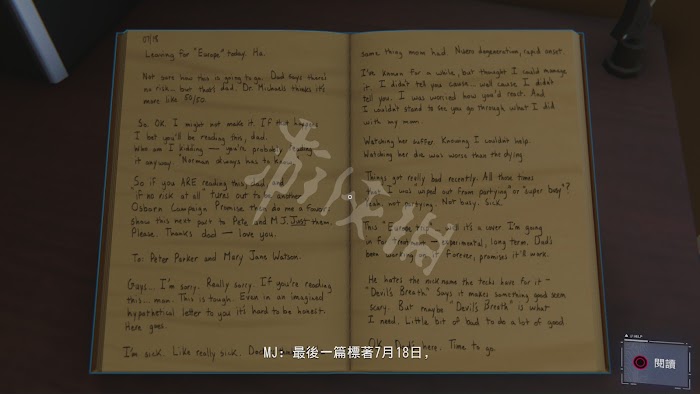 07/18
Leaving for "Europe" today. Ha.
Not sure how this is going to go. Dad says there's
no risk... but that's dad. Dr. Michaels thinks it's
more like 50/50.
So. OK. I might not make it. If that happens
I bet you'll be reading this, dad.
Who am I kidding — you're probably reading
it anyway. "Norman always has to know."
So if you ARE reading this, dad, and
"no risk at all" turns out to be another
Osborn Campaign Promise then do me a favor
show this next part to Pete and MJ. Just them.
Please. Thanks dad — love you.
To: Peter Parker and Mary Jane Watson.
Guys... I'm sorry. Really sorry. If you're reading
this... man. This is tough. Even in an imagined
hypothetical letter to you it's hard to be honest.
Here goes.
I'm sick. Like really sick.
same thing mom had. Neuro degeneration, rapid onset.
I've known for a while, but thought I could manage
it. I didn't tell you cause... well cause I didn't
tell you. I was worried how you'd react. And
I couldn't stand to see you go through what I did
with my mom.
Watching her suffer. Knowing I couldn't help.
Watching her die was worse than the dying.
Things got really bad recently. All those times
that I was "wiped out from partying" or "super busy"?
Yeah, not partying. Not busy. Sick.
This "Europe trip" well it's a cover. I'm going
in for treatment — experimental, long term. Dad's
been working on it forever, promises it'll work.
He hates the nickname the techs have for it -
"Devil's Breath" Says it makes something good seem
scary. But maybe "Devil's Breath" is what
I need. Little bit of bad to do a lot of good.
OK. Dad's here. Time to go.
MJ: 最後一篇標著7月18日,
HELP
閱讀